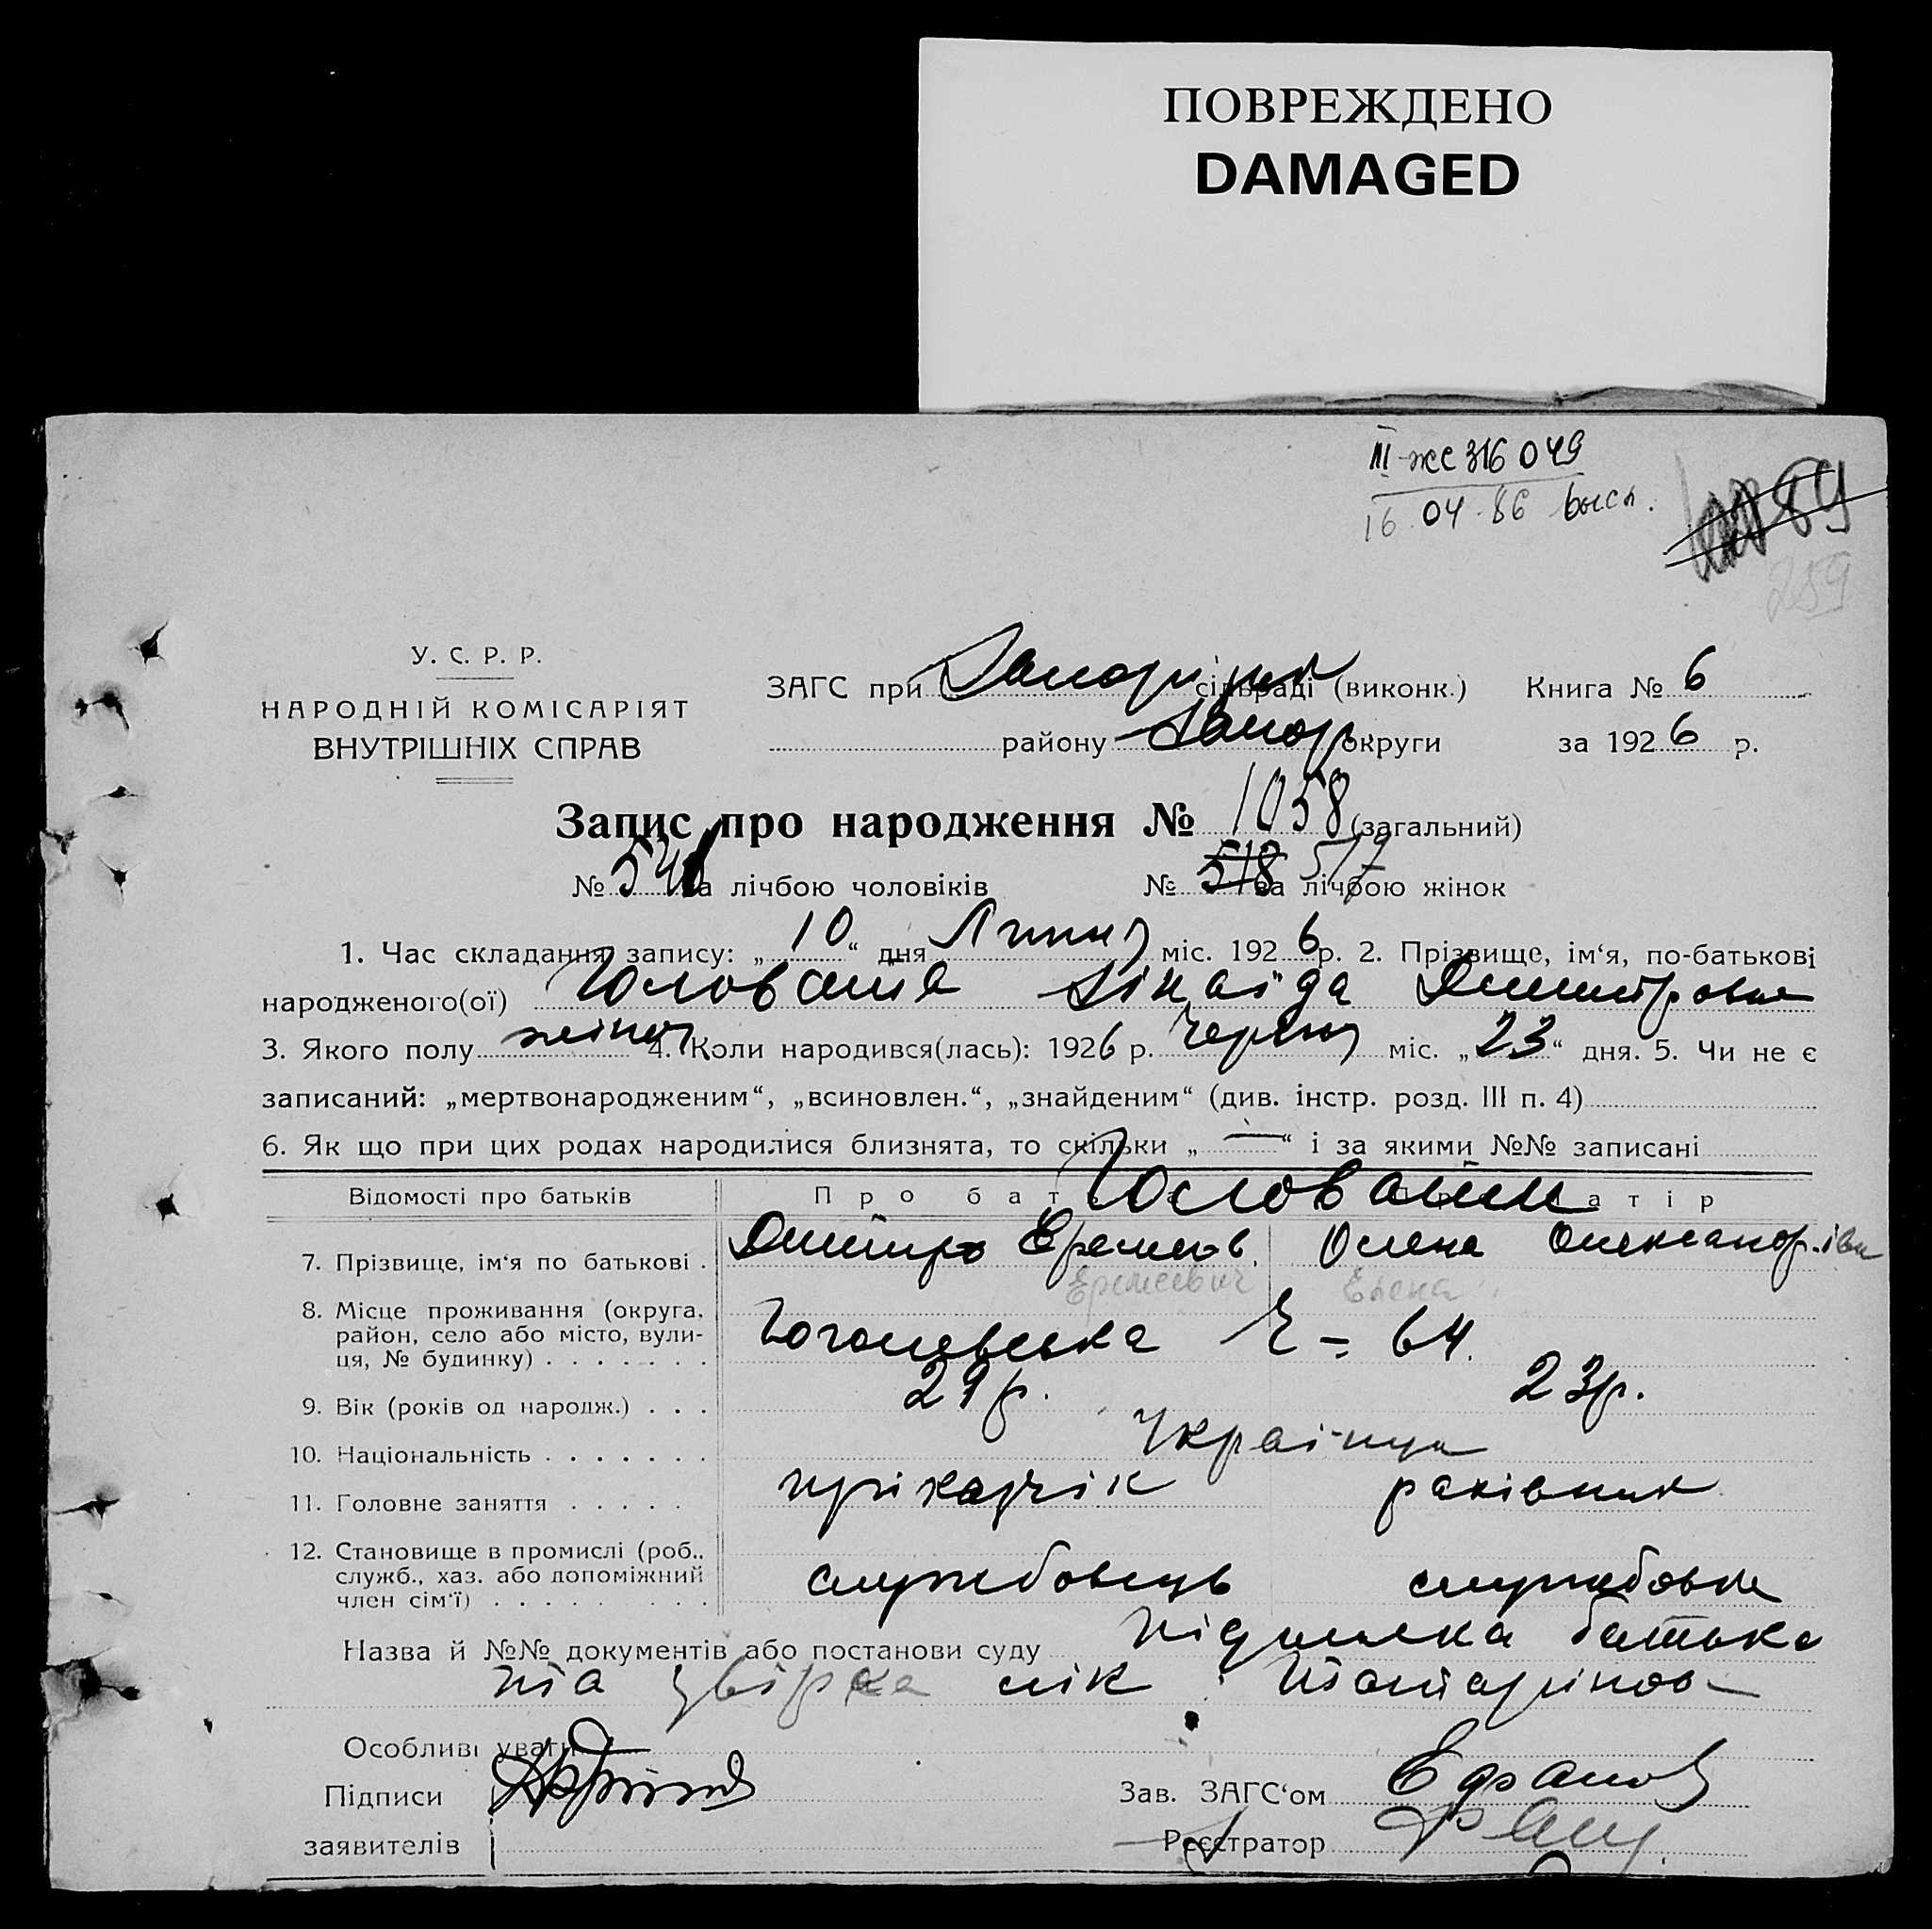 ПОВРЕЖДЕНО
DAMAGED
III-жс 316049
16.04.86 высл.
89
259
У. С. Р. Р.
НАРОДНІЙ КОМІСАРІЯТ
ВНУТРІШНІХ СПРАВ
ЗАГС при сільраді (виконк.) Книга № 6
району Запор. округи за 1926 р.
Запис про народження № 1058 (загальний)
№ 541 за лічбою чоловіків № 518 517 за лічбою жінок
1. Час складання запису: „10“ дня Липня міс. 1926 р. 2. Прізвище, ім‘я, по-батькові
народженого(ої) Головатa Зінаїда Дмитровна
3. Якого полу жіноч. 4. Коли народився(лась): 1926 р. Червня міс. „23“ дня. 5. Чи не є
записаний: „мертвонародженим“, „всиновлен.“, „знайденим“ (див. інстр. розд. III п. 4)
6. Як що при цих родах народилися близнята, то скільки „—“ і за якими №№ записані
Відомості про батьків Про батька Про матір
7. Прізвище, ім‘я по батькові . Дмитро Еремеов. Олена Олександрівн
Еремеевич Елена
8. Місце проживання (округа, район, село або місто, вулиця, № будинку) Гоголевська 64.
9. Вік (років од народж.) . . . 29 р. 23 р.
10. Національність Україньця
11. Головне заняття прікащік раківник
12. Становище в промислі (роб., служб., хаз. або допоміжний член сім‘ї) службовець службовка
Назва й №№ документів або постанови суду підписка батька
та звірка лік
Особливі уваги
Підписи
заявителів
Зав. ЗАГС‘ом
Реєстратор